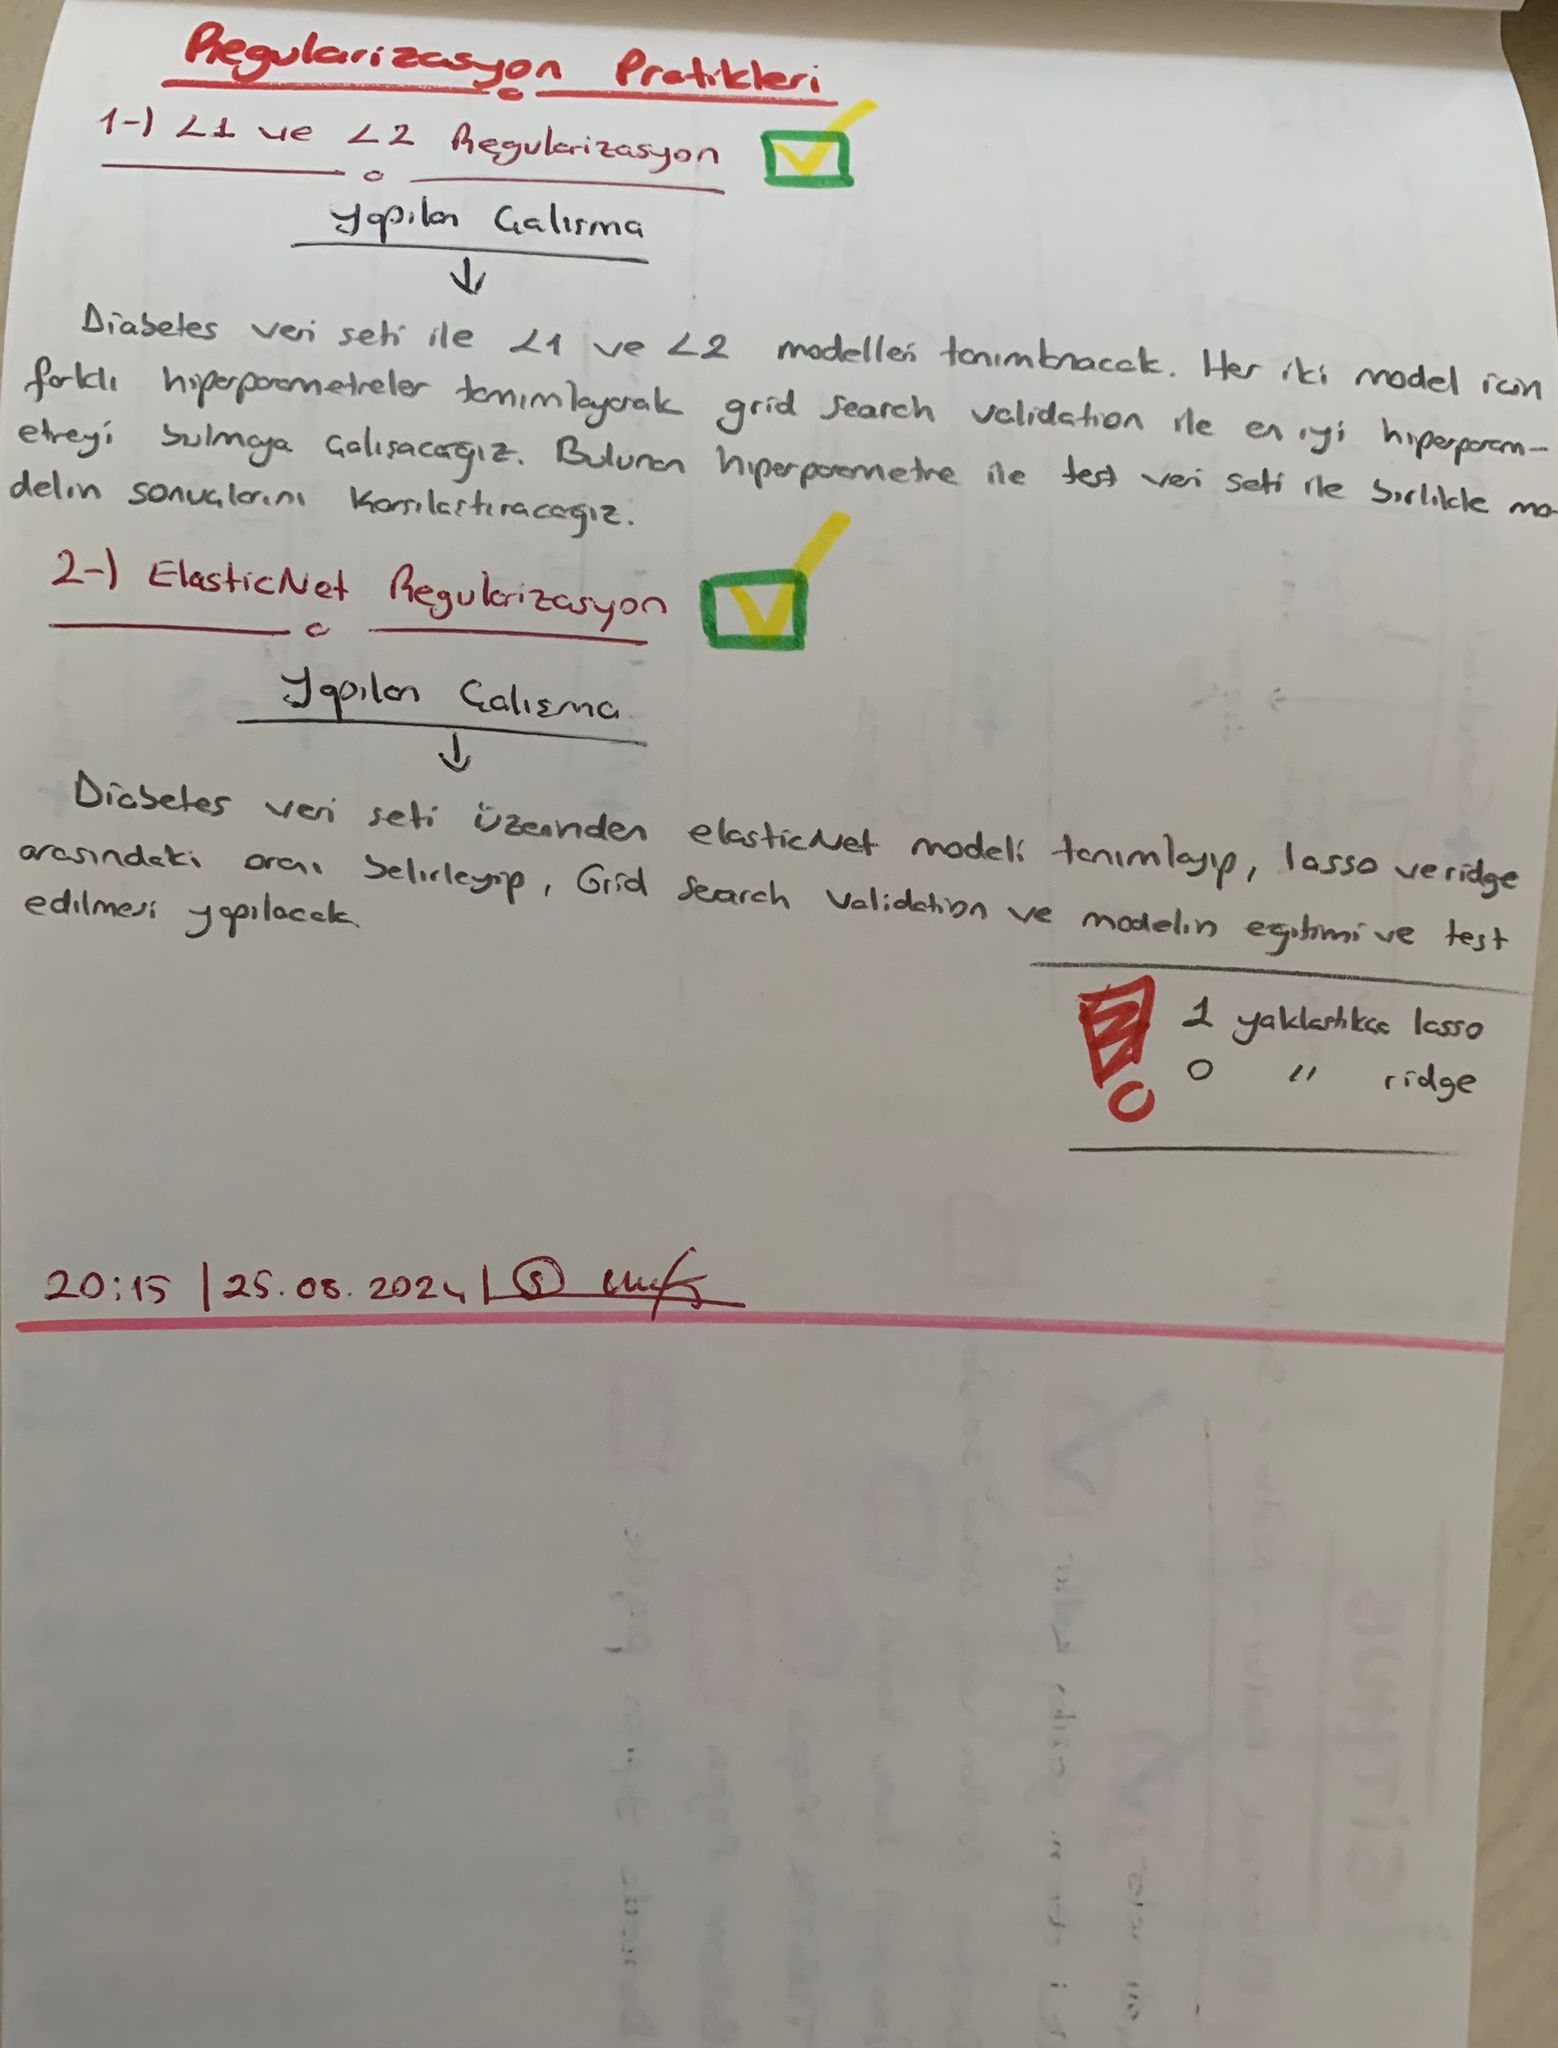 Regularizasyon Pratikleri
1-) L1 ve L2 Regularizasyon
Yapılan Çalısma
↓
Diabetes veri seti ile L1 ve L2 modelleri tanımlanacak. Her iki model icin
farklı hiperparametreler tanımlayarak grid search validation ile en iyi hiperparam-
etreyi bulmaya çalışacağız. Bulunan hiperparametre ile test veri seti ile birlikte mo-
delin sonuçlarını karsılastıracağız.
2-) ElasticNet Regularizasyon
Yapılan Çalışma
↓
Diabetes veri seti üzerinden elasticNet modeli tanımlayıp, lasso ve ridge
arasındaki oranı belirleyip, Grid Search Validation ve modelin eğitimi ve test
edilmesi yapılacak
! 1 yaklastıkca lasso
0 " ridge
20:15 | 25.08.2024 |